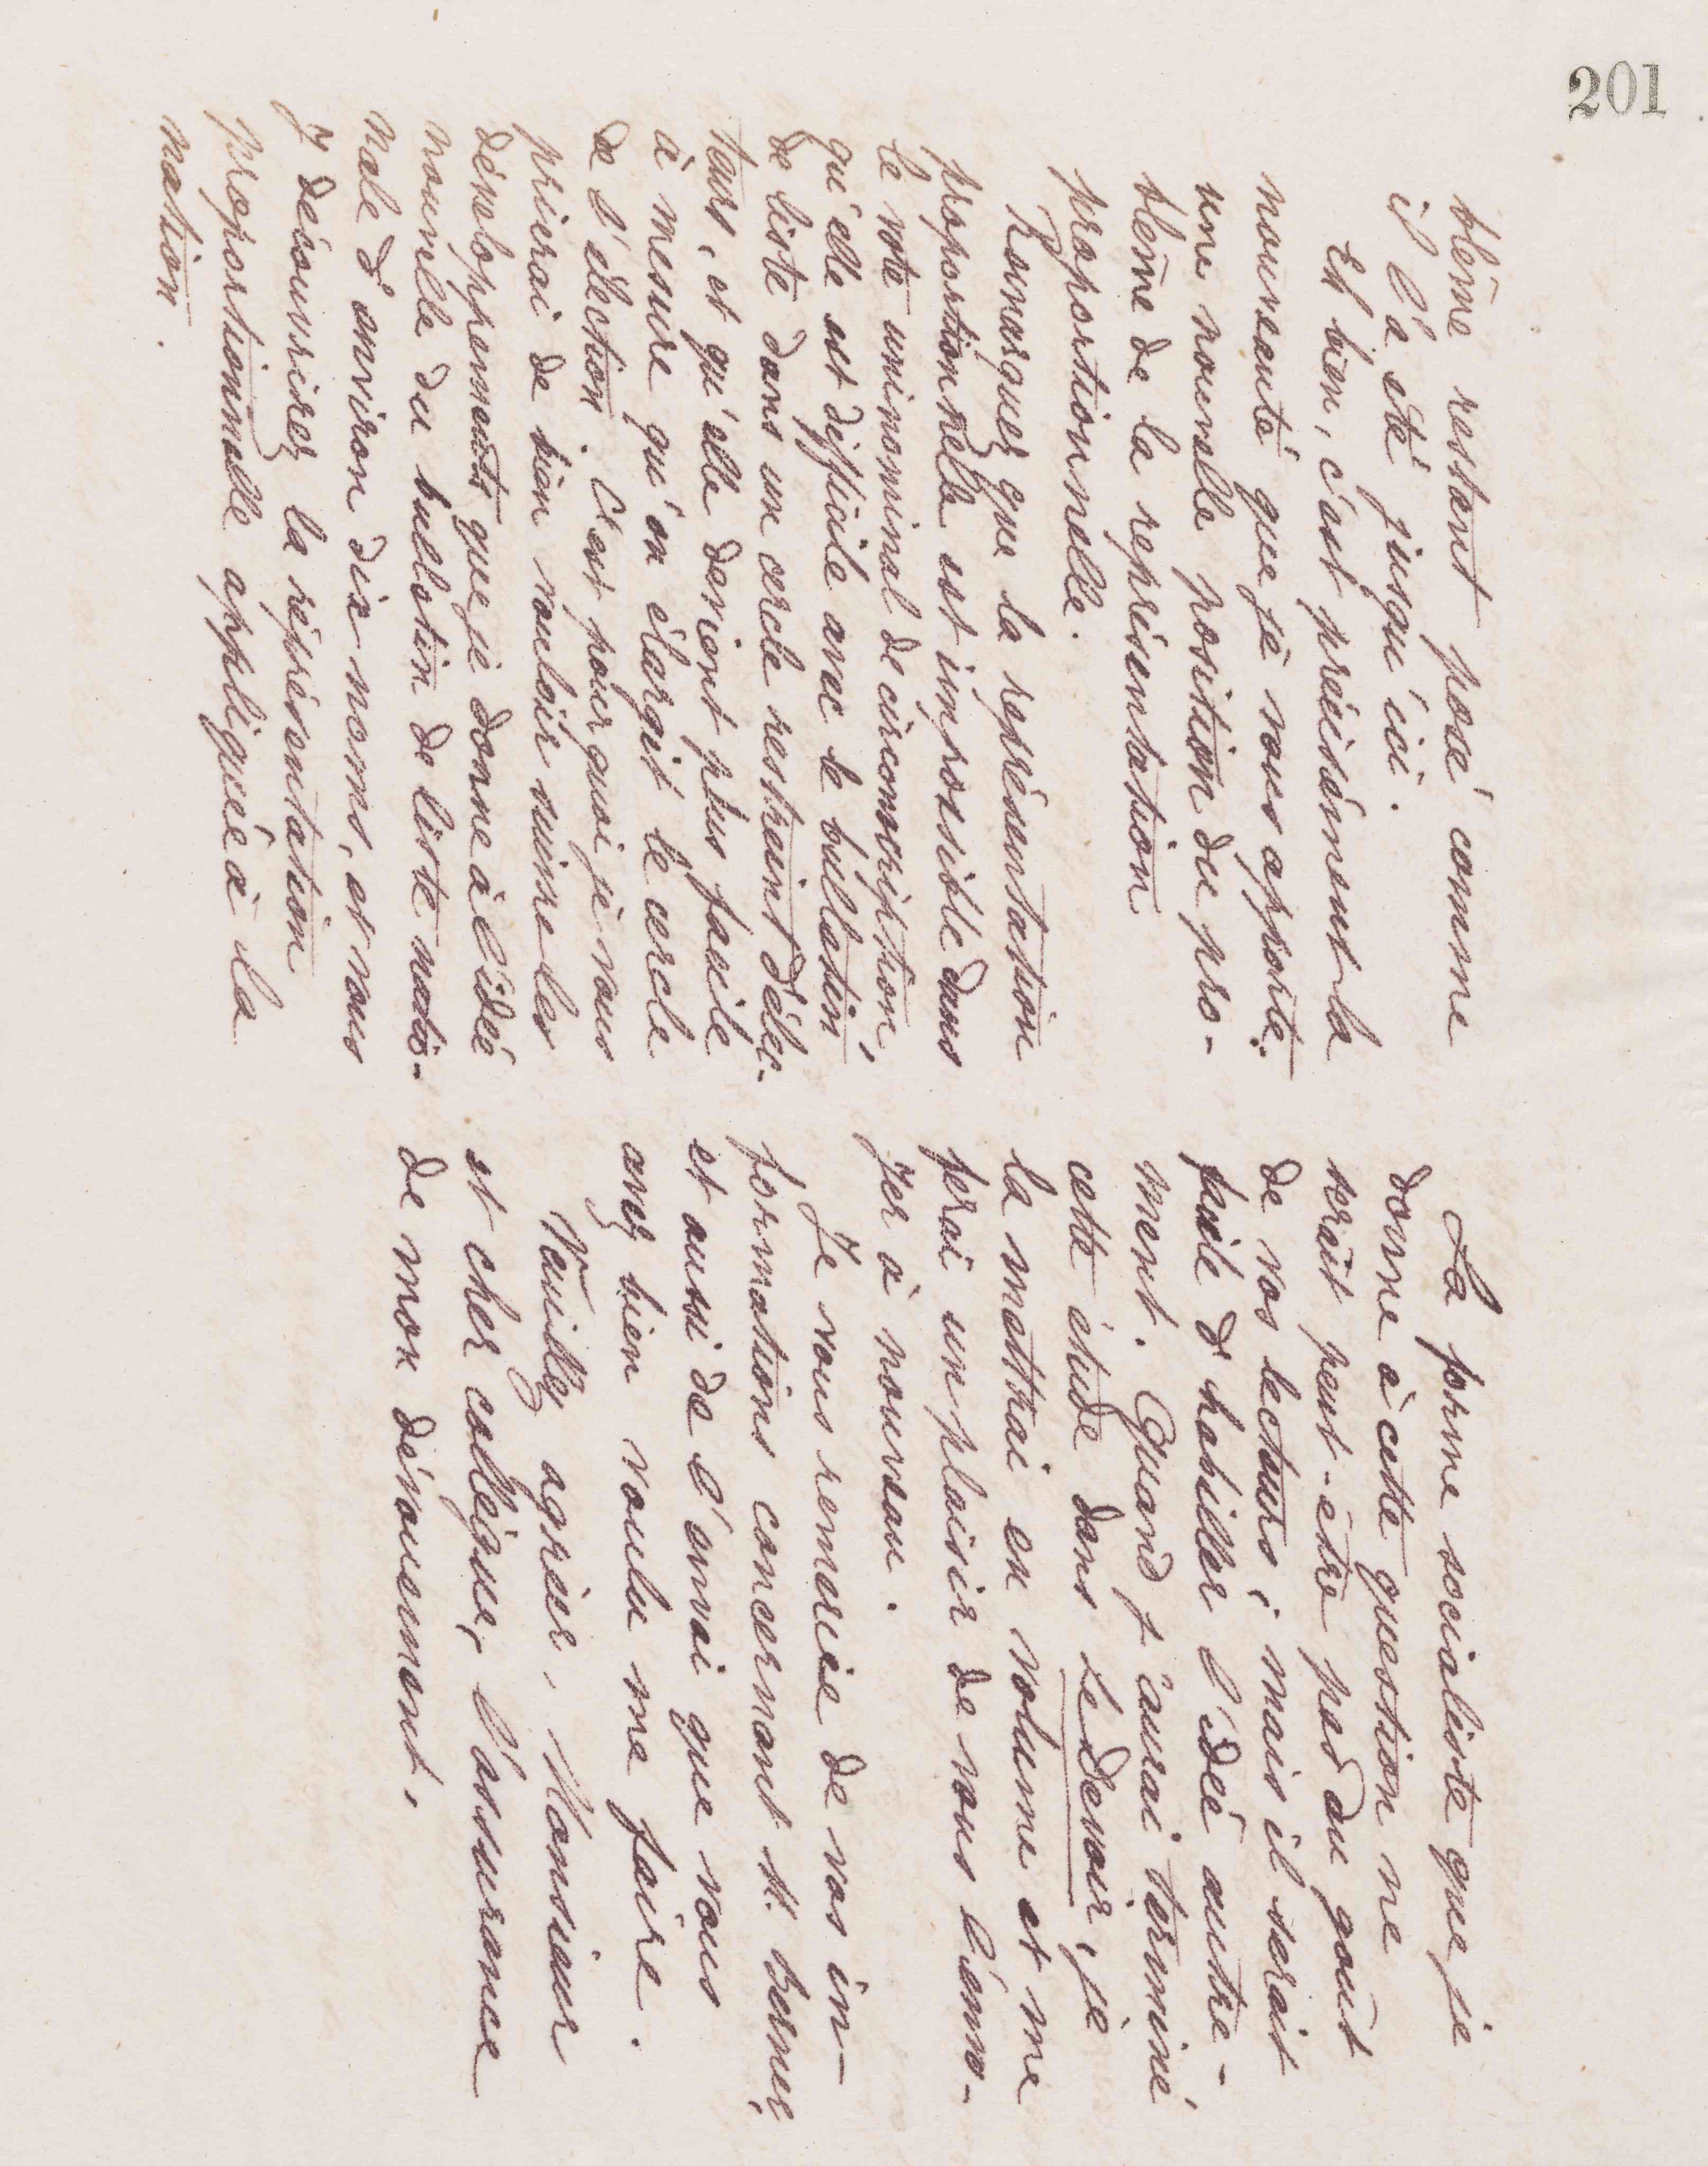 201
blême restent posé comme
il l'a été jusqu'ici.
Eh bien, c'est précisément la
nouveauté que je vous apporte:
une nouvelle position du pro-
blême de la représentation
proportionnelle.
Remarquez que la représentation
proportionnelle est impossible dans
le vote uninominal de circonscription,
qu'elle est difficile avec le bulletin
de liste dans un cercle restreint d'élec-
teurs, et qu'elle devient plus facile
à mesure qu'on élargit le cercle
de l'élection. C'est pourquoi je vous
prierai de bien vouloir suivre les
développements que je donne à l'idée
nouvelle du bulletin de liste natio-
nale d'environ dix noms, et vous
y découvrirez la représentation
proportionnelle appliquée à la
nation.
La forme socialiste que je
donne à cette question ne
serait peut-être pas du goût
de vos lecteurs; mais il serait
facile d'habiller l'idée autre-
ment. Quand j'aurai terminé
cette étude dans Le Devoir, je
la mettrai en volume et me
ferai un plaisir de vous l'envo-
yer à nouveau.
Je vous remercie de vos in-
formations concernant M. Burnez,
et aussi de l'envoi que vous
avez bien voulu me faire.
Veuillez agréer, Monsieur
et cher collègue, l'assurance
de mon dévouement.